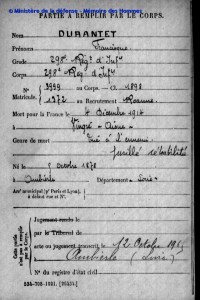 © Ministère de la défense - Mémoire des Hommes
PARTIE À REMPLIR PAR LE CORPS.
Nom DURANTET
Prénoms Francisque
Grade
Corps 298e Rég. d'Infie
N° 3959 au Corps. — Cl. 1898
Matricule. 1372 au Recrutement Roanne
Mort pour la France le 4 Décembre 1914
à Vingré - Aisne
Genre de mort Tué à l'ennemi
fusillé réhabilité
Né le 5 octobre 1878
à Ambierle Département Loire
Arr' municipal (p' Paris et Lyon),
à défaut rue et N°.
Cette partie
n'est pas
à remplir
par le Corps.
Jugement rendu le
par le Tribunal de
acte ou jugement transcrit le 12 Octobre
à Ambierle (Loire)
N° du registre d'état civil
534-708-1921. [26434.]